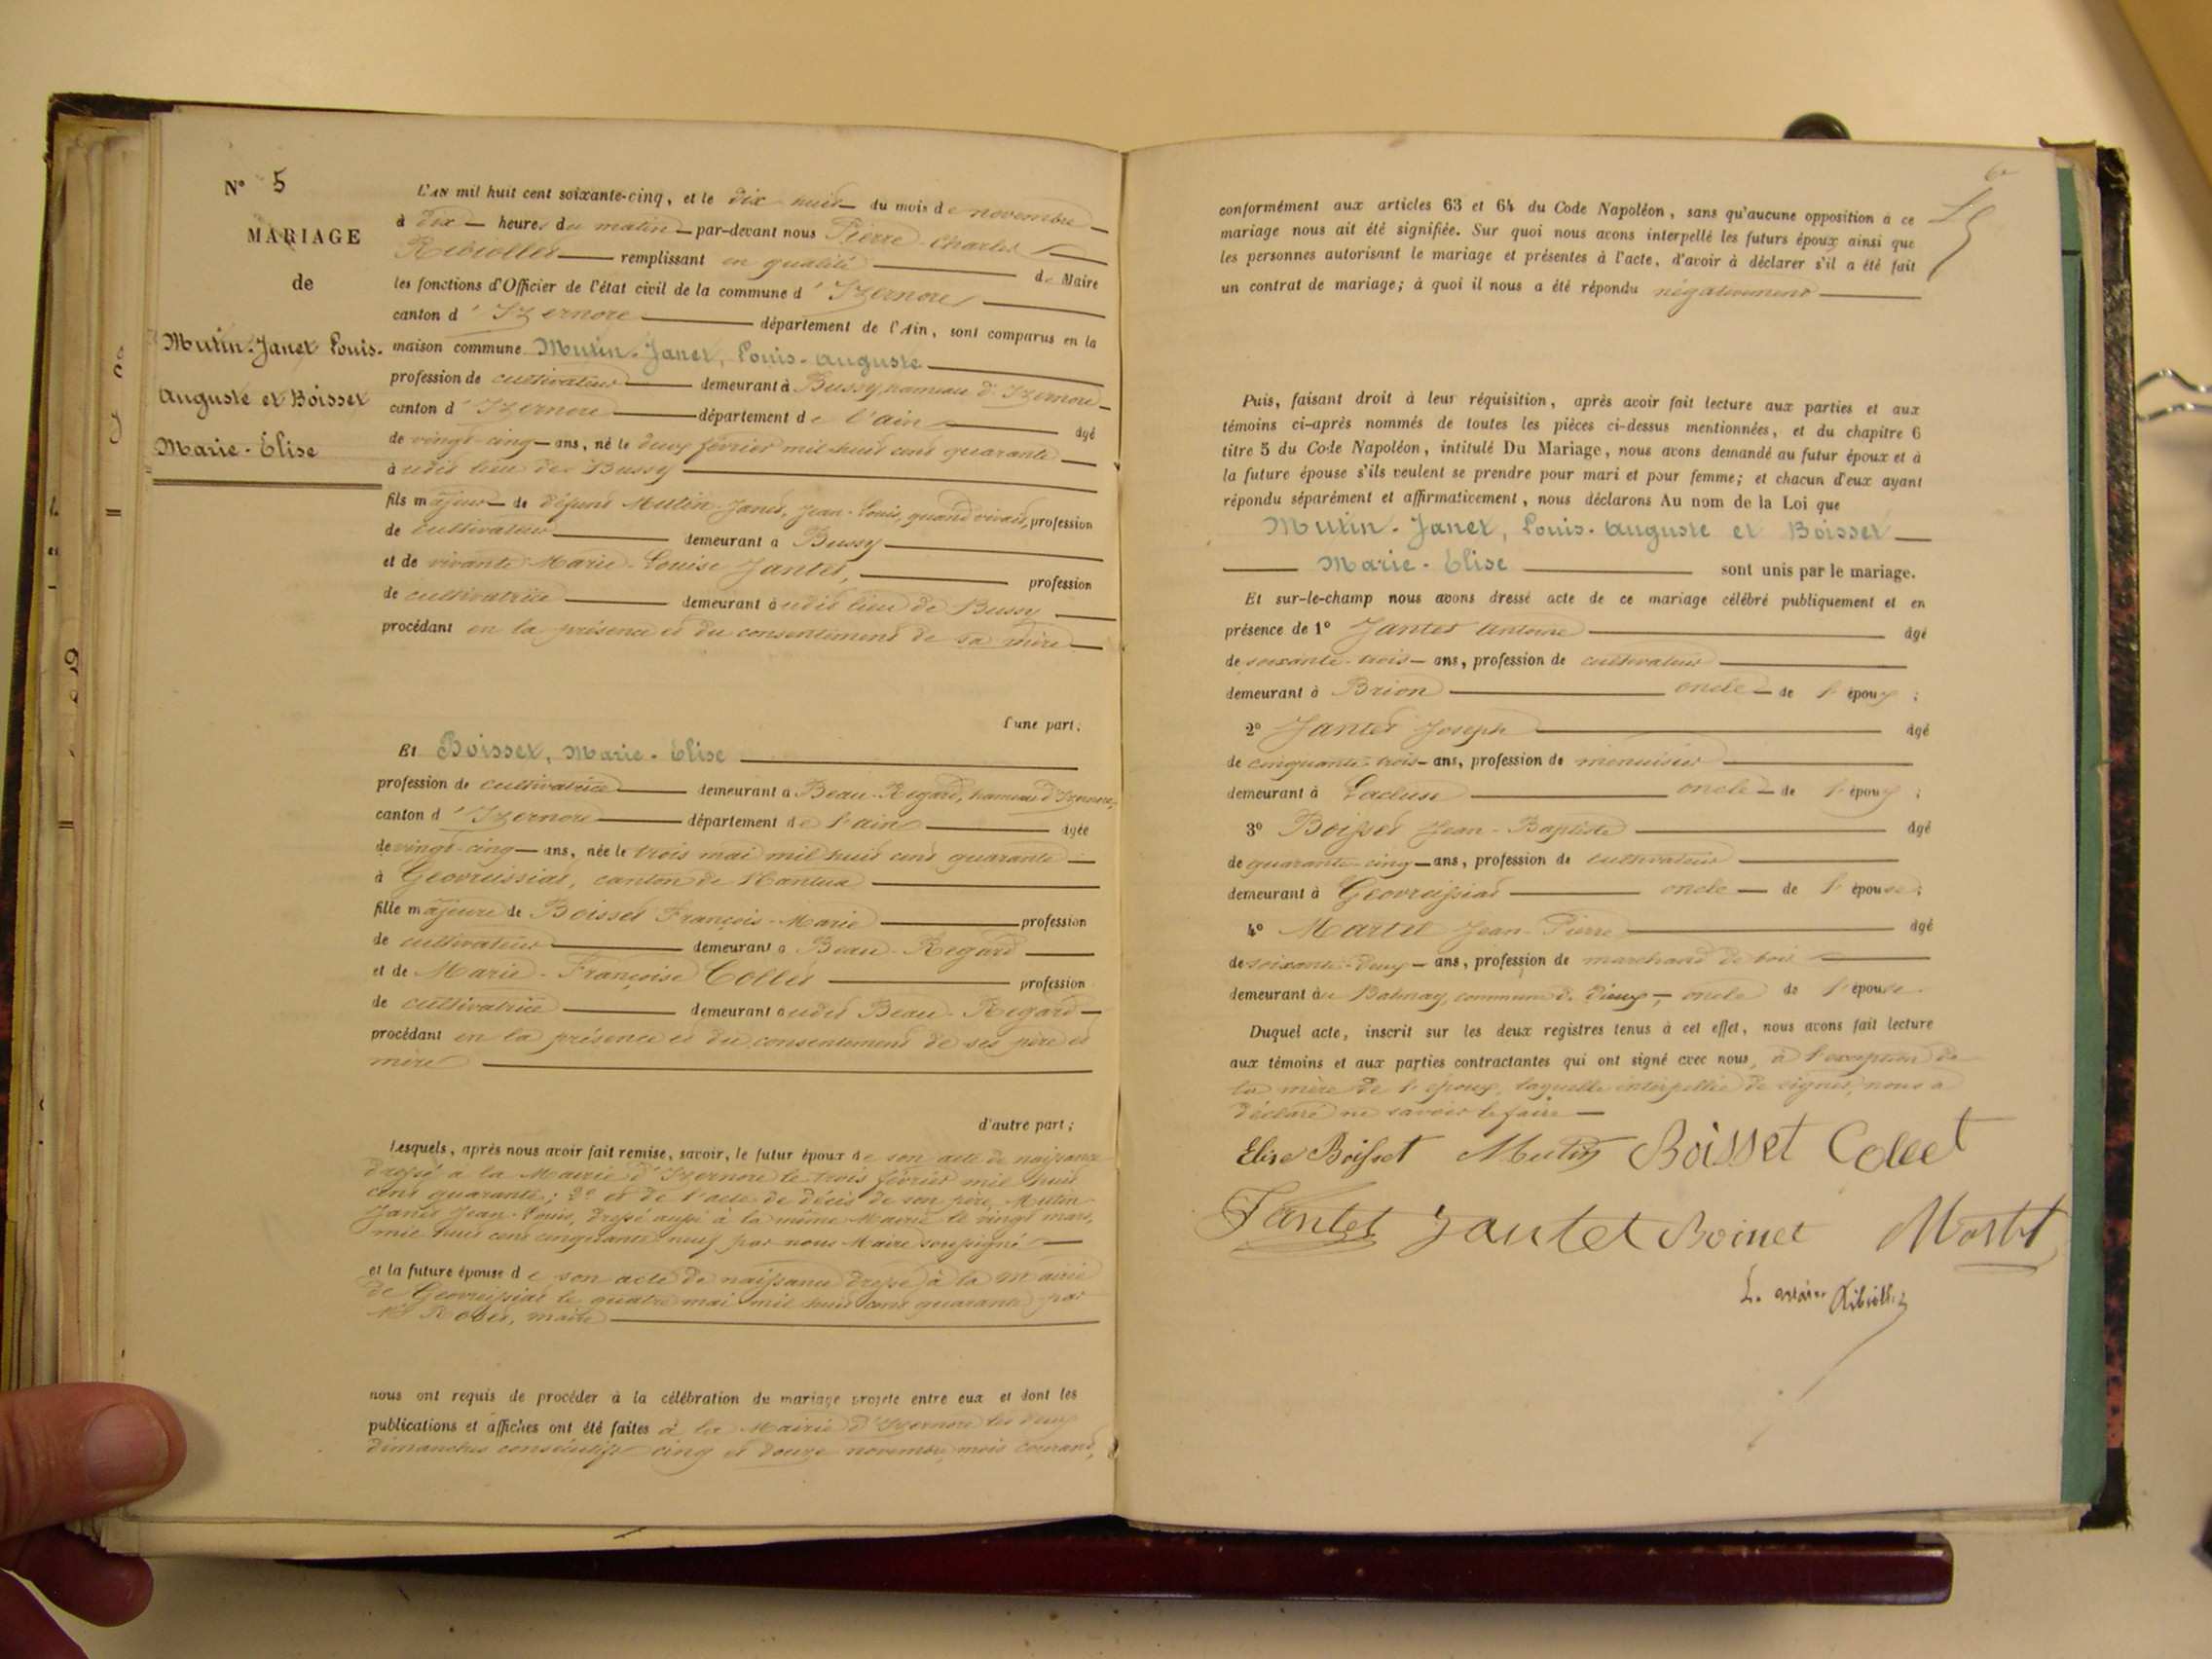 N° 5
MARIAGE
de
Mutin-Janet Louis-
Auguste et Boisset
Marie-Élise
L'AN mil huit cent soixante-cinq, et le dix-huit du mois de novembre
à dix heures du matin par-devant nous Pierre-Charles
Ribiollet remplissant en qualité de Maire
les fonctions d'Officier de l'état civil de la commune d'Izernore
canton d'Izernore département de l'Ain, sont comparus en la
maison commune Mutin-Janet, Louis-Auguste
profession de cultivateur demeurant à Bussy, hameau d'Izernore
canton d'Izernore département de l'ain âgé
de vingt-cinq ans, né le deux février mil huit cent quarante
audit lieu de Bussy
fils majeur de défunt Mutin-Janet, Jean-Louis, quand vivait, profession
de cultivateur demeurant à Bussy
et de vivante Marie-Louise Jantet, profession
de cultivatrice demeurant audit lieu de Bussy
procédant en la présence et du consentement de sa mère
d'une part;
Et Boisset, Marie-Élise
profession de cultivatrice demeurant à Beau-Regard, hameau d'Izernore,
canton d'Izernore département de l'ain âgée
de vingt-cinq ans, née le trois mai mil huit cent quarante
à Geovreissiat, canton de Nantua
fille majeure de Boisset François-Marie profession
de cultivateur demeurant à Beau-Regard
et de Marie-Françoise Collet profession
de cultivatrice demeurant audit Beau-Regard
procédant en la présence et du consentement de ses père et
mère
d'autre part;
Lesquels, après nous avoir fait remise, savoir, le futur époux de son acte de naissance
dressé à la Mairie d'Izernore le trois février mil huit
cent quarante; 2° et de l'acte de décès de son père, Mutin-
Janet Jean-Louis, dressé aussi à la même Mairie le vingt mars,
mil huit cent cinquante-neuf par nous Maire soussigné
et la future épouse de son acte de naissance dressé à la Mairie
de Geovreissiat le quatre mai mil huit cent quarante par
Mr maire
nous ont requis de procéder à la célébration du mariage projeté entre eux et dont les
publications et affiches ont été faites à la Mairie d'Izernore les deux
dimanches consécutifs cinq et douze novembre, mois courant,
conformément aux articles 63 et 64 du Code Napoléon, sans qu'aucune opposition à ce
mariage nous ait été signifiée. Sur quoi nous avons interpellé les futurs époux ainsi que
les personnes autorisant le mariage et présentes à l'acte, d'avoir à déclarer s'il a été fait
un contrat de mariage; à quoi il nous a été répondu négativement
Puis, faisant droit à leur réquisition, après avoir fait lecture aux parties et aux
témoins ci-après nommés de toutes les pièces ci-dessus mentionnées, et du chapitre 6
titre 5 du Code Napoléon, intitulé Du Mariage, nous avons demandé au futur époux et à
la future épouse s'ils veulent se prendre pour mari et pour femme; et chacun d'eux ayant
répondu séparément et affirmativement, nous déclarons Au nom de la Loi que
Mutin-Janet, Louis-Auguste et Boisset
Marie-Élise sont unis par le mariage.
Et sur-le-champ nous avons dressé acte de ce mariage célébré publiquement et en
présence de 1° Jantet Antoine âgé
de soixante-trois ans, profession de cultivateur
demeurant à Brion oncle de l'époux;
2° Jantet Joseph âgé
de cinquante-trois ans, profession de menuisier
demeurant à Lacluse oncle de l'époux;
3° Boisset Jean-Baptiste âgé
de quarante-cinq ans, profession de cultivateur
demeurant à Geovreissiat oncle de l'épouse;
4° Martel Jean-Pierre âgé
de soixante-deux ans, profession de marchand de bois
demeurant au Balmay, commune de Vieux, oncle de l'épouse.
Duquel acte, inscrit sur les deux registres tenus à cet effet, nous avons fait lecture
aux témoins et aux parties contractantes qui ont signé avec nous, à l'exception de
la mère de l'époux, laquelle interpellée de signer, nous a
déclaré ne savoir le faire
Elise Boisset Mutin Boisset Collet
Jantet Jantet Boisset Martel
L. maire Ribiollet